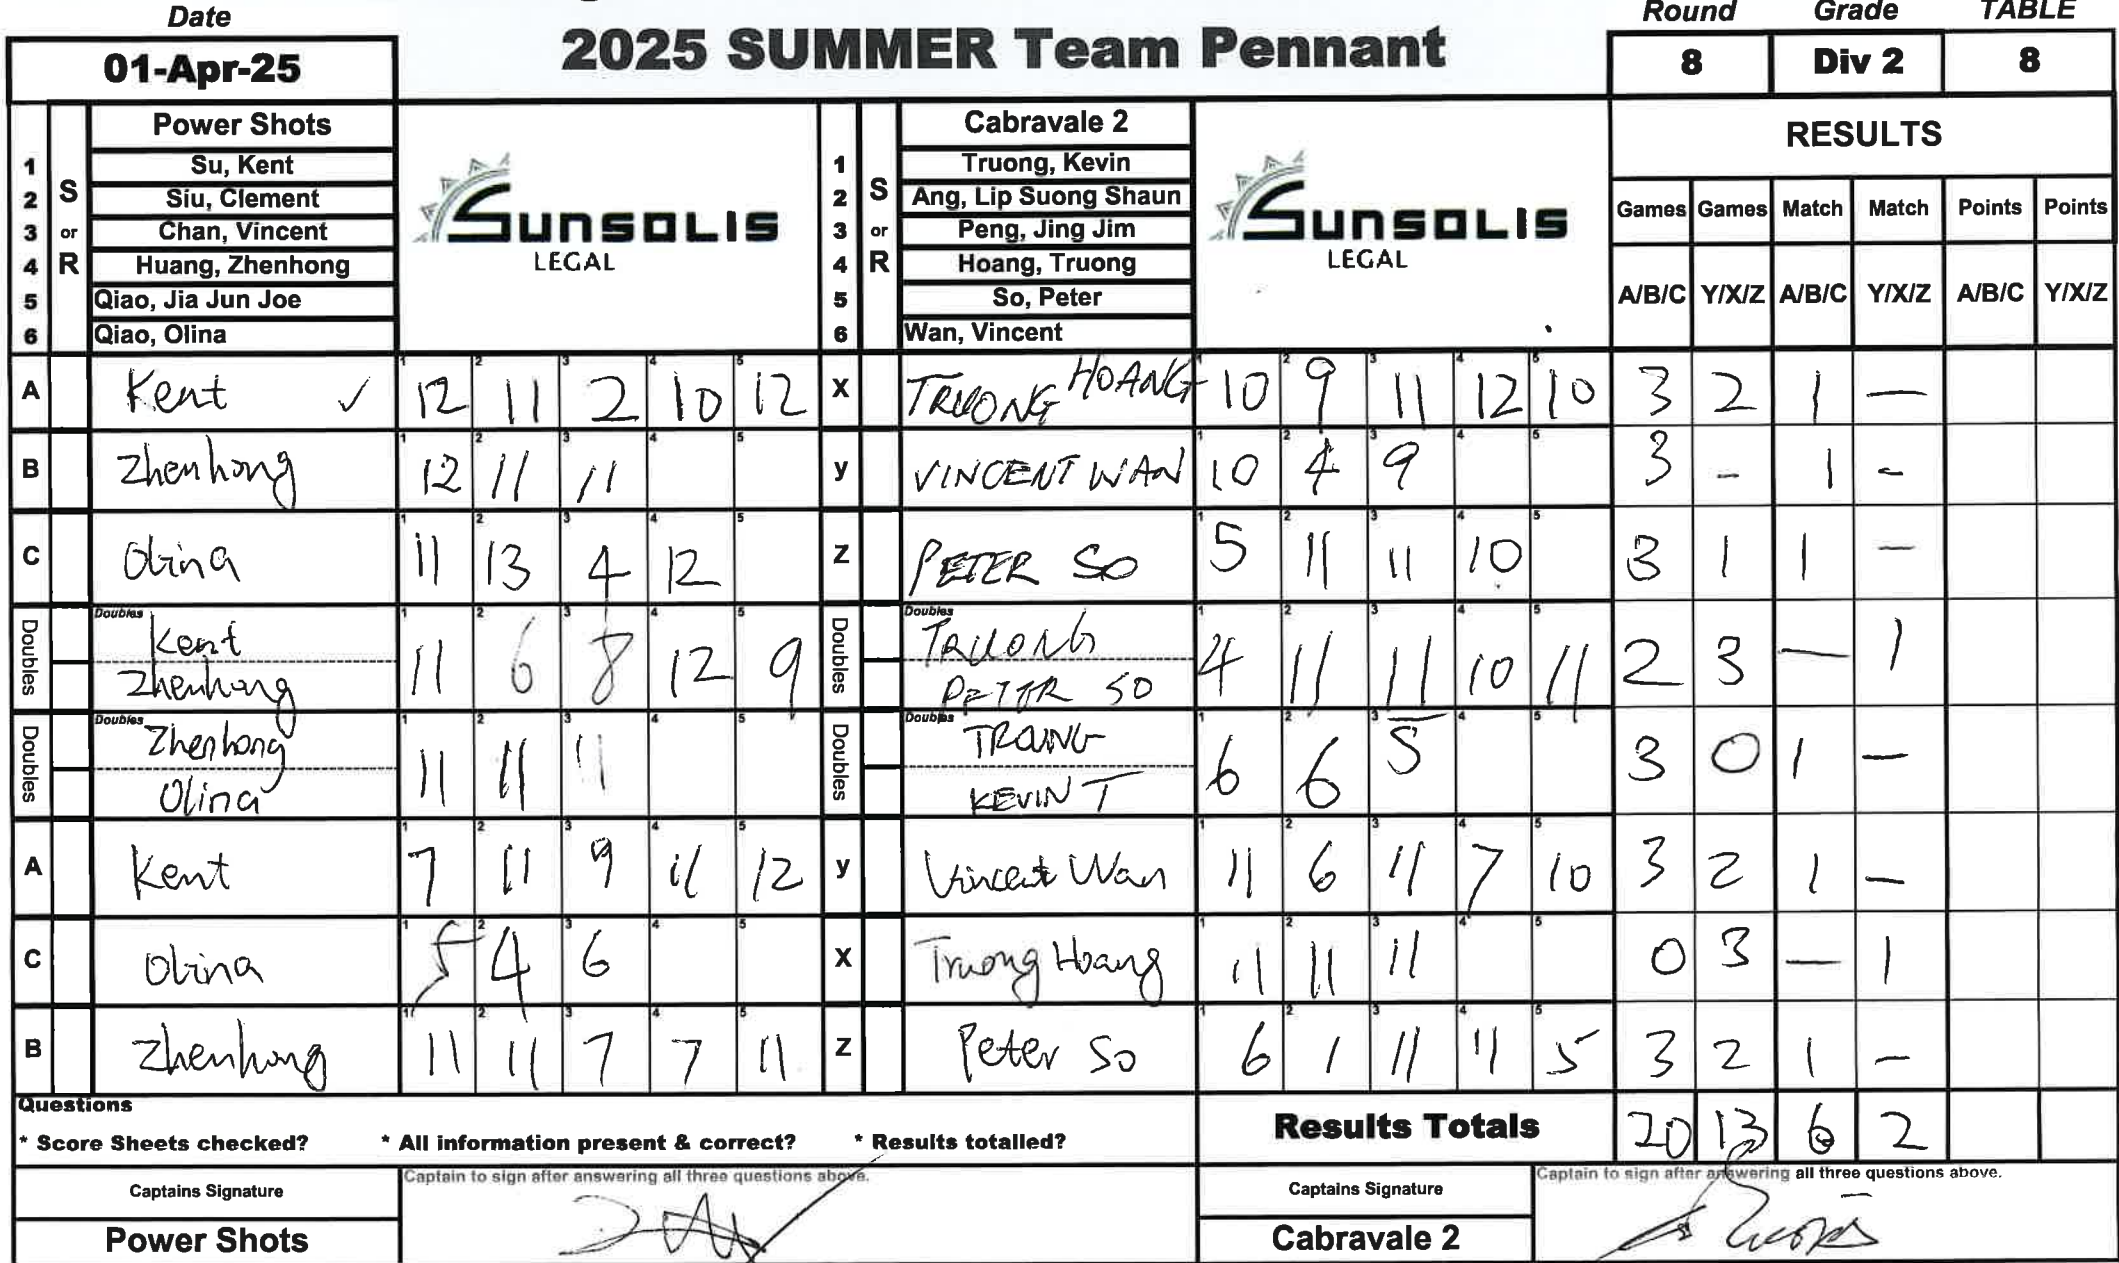 Date
2025 SUMMER Team Pennant
Round Grade TABLE
01-Apr-25
8 Div 2 8
S or R
Power Shots
1 Su, Kent
2 Siu, Clement
3 Chan, Vincent
4 Huang, Zhenhong
5 Qiao, Jia Jun Joe
6 Qiao, Olina
SUNSOLIS
LEGAL
S or R
Cabravale 2
1 Truong, Kevin
2 Ang, Lip Suong Shaun
3 Peng, Jing Jim
4 Hoang, Truong
5 So, Peter
6 Wan, Vincent
SUNSOLIS
LEGAL
RESULTS
Games Games Match Match Points Points
A/B/C Y/X/Z A/B/C Y/X/Z A/B/C Y/X/Z
A Kent ✓ 12 11 2 10 12 X TRUONG HOANG 10 9 11 12 10 3 2 1 —
B Zhenhong 12 11 11 y VINCENT WAN 10 4 9 3 - 1 -
C Olina 11 13 4 12 Z PETER SO 5 11 11 10 3 1 1 —
Doubles Kent Zhenhong 11 6 8 12 9 Doubles TRUONG PETER SO 4 11 11 10 11 2 3 — 1
Doubles Zhenhong Olina 11 11 11 Doubles TROUNG KEVIN T 6 6 5 3 0 1 —
A Kent 7 11 9 11 12 y Vincent Wan 11 6 11 7 10 3 2 1 —
C Olina 5 4 6 X Truong Hoang 11 11 11 0 3 — 1
B Zhenhong 11 11 7 7 11 Z Peter So 6 1 11 11 5 3 2 1 —
Questions
* Score Sheets checked? * All information present & correct? * Results totalled?
Results Totals 20 13 6 2
Captains Signature
Captain to sign after answering all three questions above.
Power Shots
Captains Signature
Captain to sign after answering all three questions above.
Cabravale 2